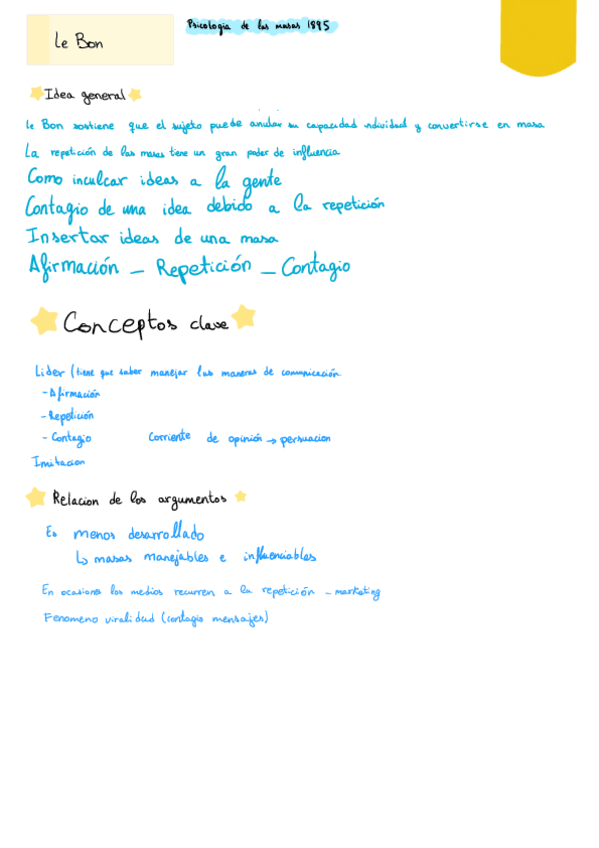 Le Bon
Psicologia de las masas 1895
Idea general
le Bon sostiene que el sujeto puede anular su capacidad individual y convertirse en masa
La repetición de las masas tiene un gran poder de influencia
Como inculcar ideas a la gente
Contagio de una idea debido a la repetición
Insertar ideas de una masa
Afirmación - Repetición - Contagio
Conceptos clave
Lider (tiene que saber manejar las maneras de comunicación.
- Afirmación
- Repetición
- Contagio corriente de opinión → persuacion
Imitacion
Relacion de los argumentos
Es menos desarrollado
↳ masas manejables e influenciables
En ocasiones los medios recurren a la repetición - marketing
Fenomeno viralidad (contagio mensajes)